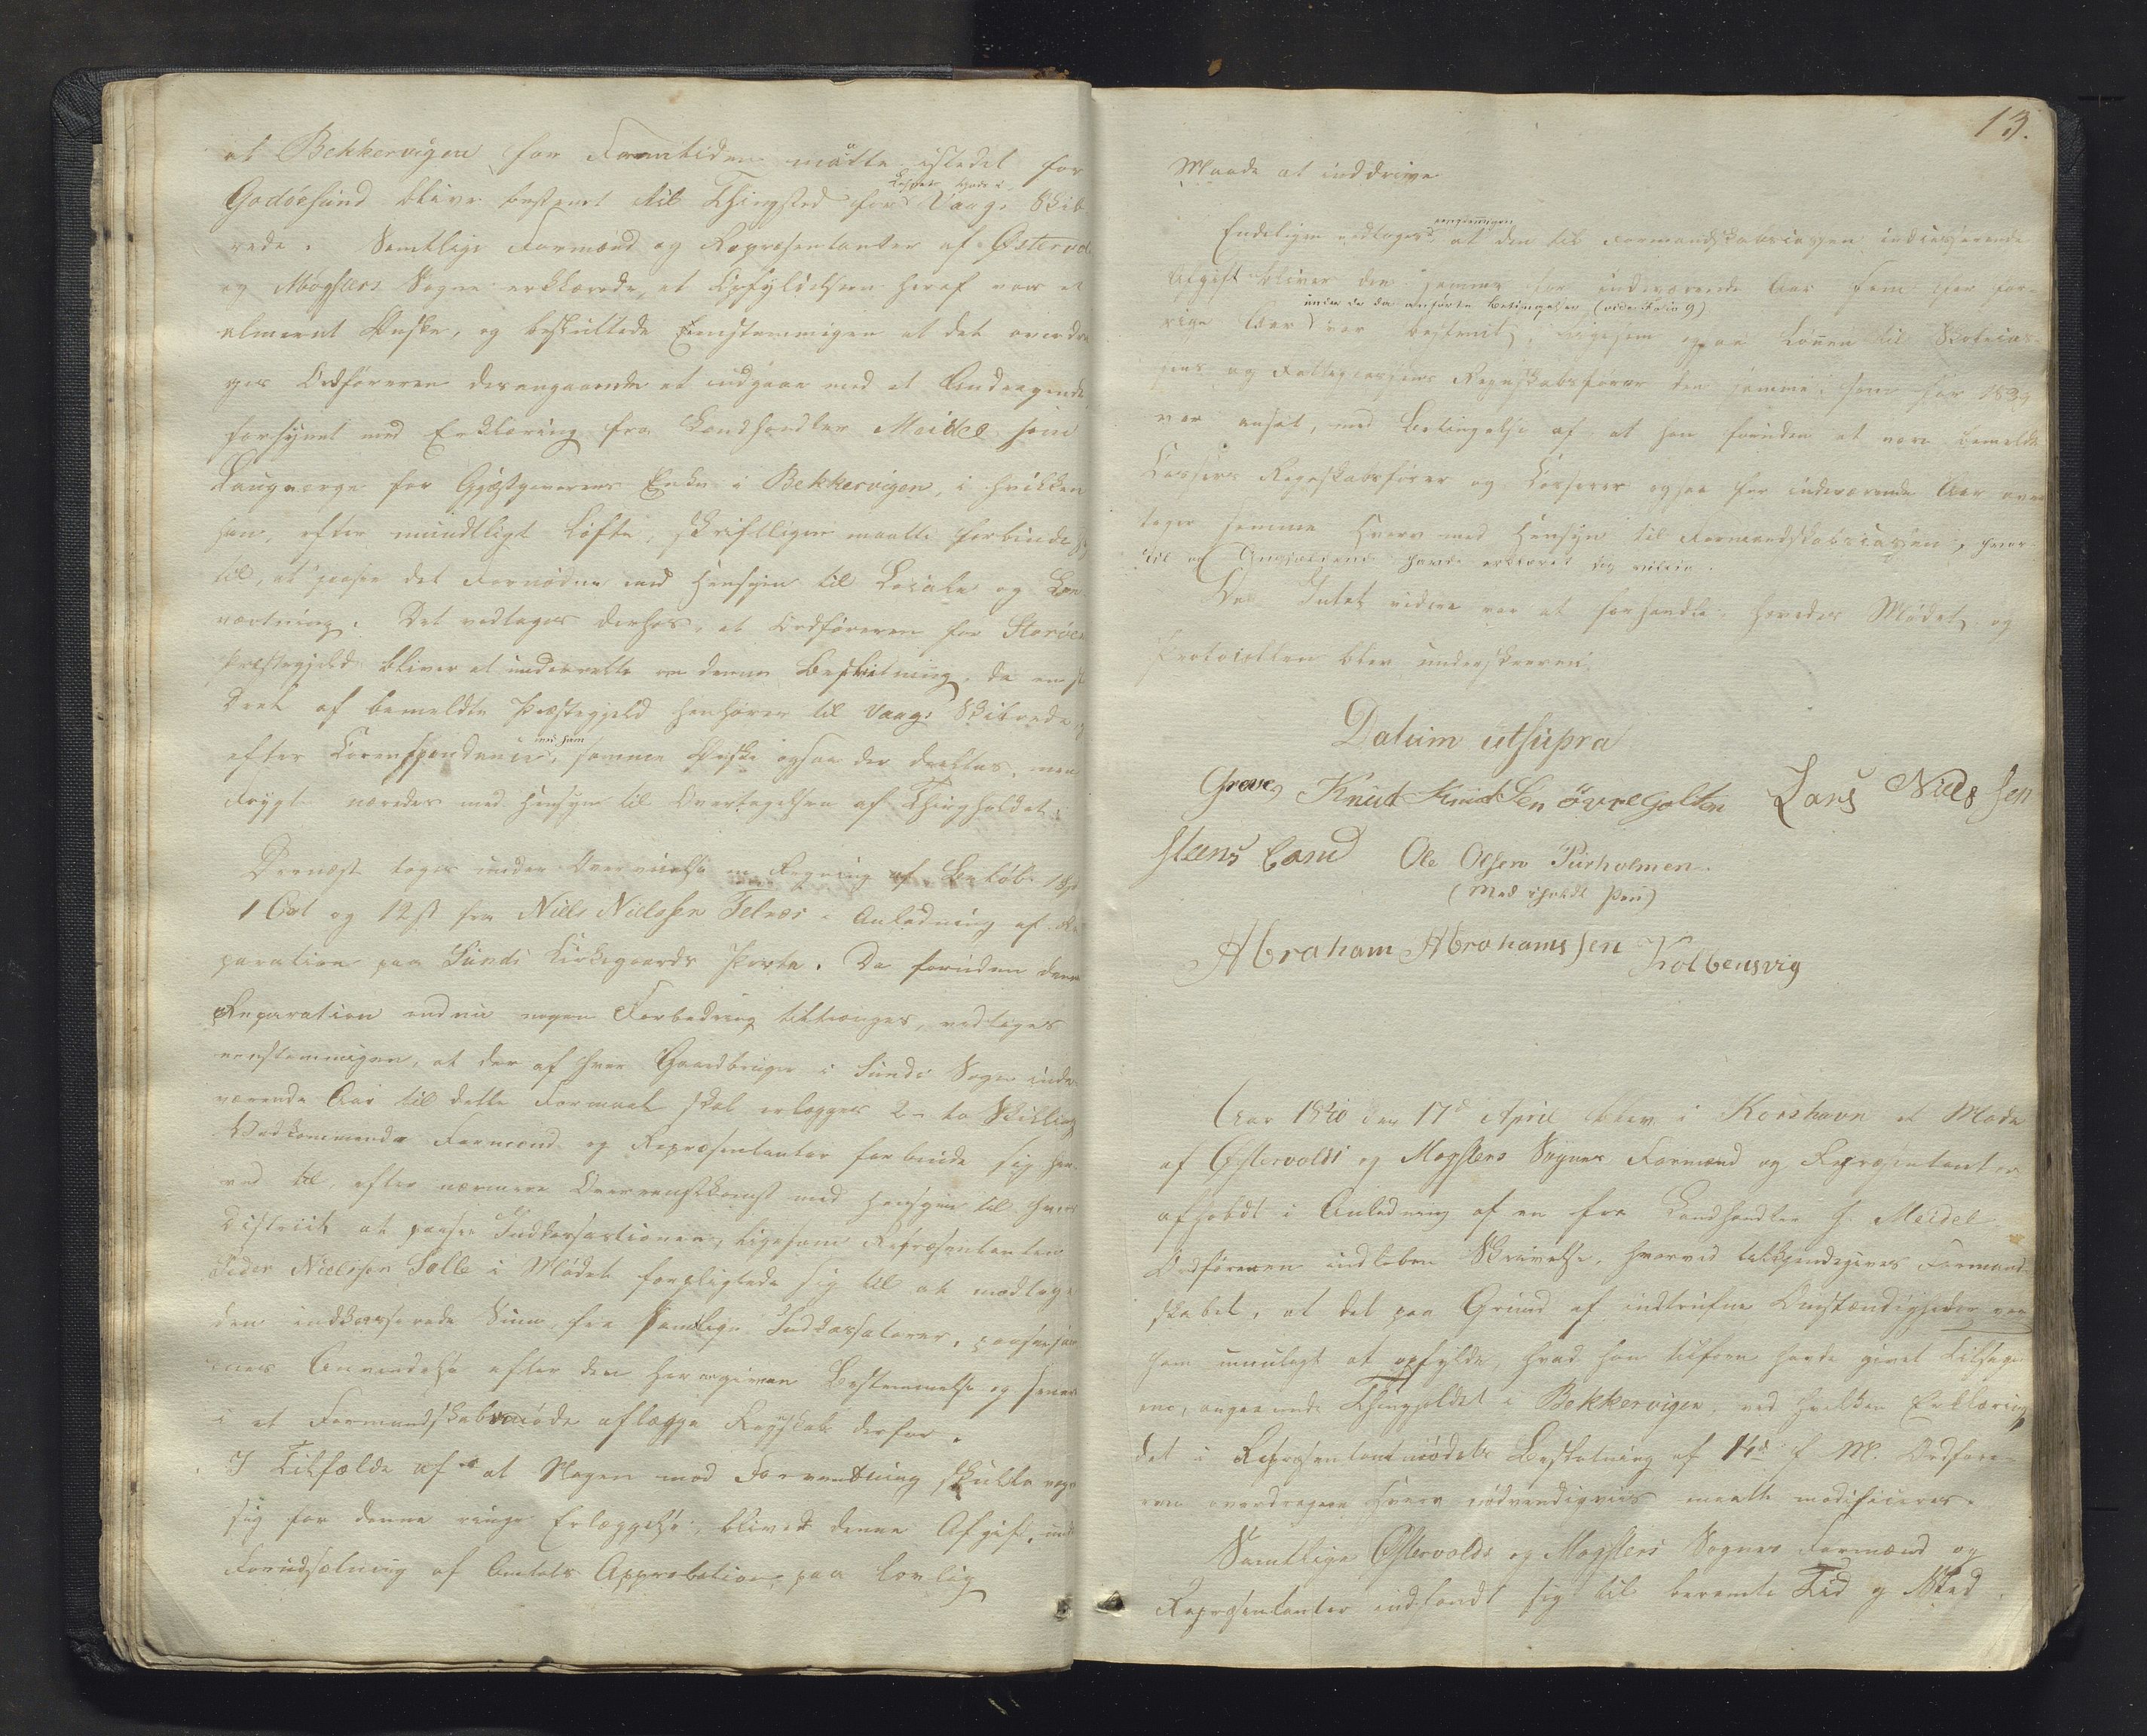 at Bekkervigen for Fremtiden måtte istedet for
Godøesund blive bestemt til Thingsted for Vaags Skib
rede. Samtlige Formænd og Repræsentanter af Østervol
og Møgsters Sogne erklærede, at Opfyldelsen heraf var et
almeent Ønske, og besluttede Eenstemmigen at det overdra
ges Ordføreren desangaaende at indgaae med et Andragende
forsynet med Erklæring fra Landhandler Meidel som
Laugværge for Gjæstgiverens Enke i Bekkervigen, i hvilken
han, efter mundtligt Løfte, skriftligen maatte forbinde sig
til, at præstere det Fornødne med Hensyn til Locale og Be
værtning. Det vedtoges derhos, at Ordføreren for Storøens
Præstegjeld bliver at underrette om denne Beslutning, da en st
Deel af bemeldte Præstegjeld henhører til Vaags Skibrede og
efter Correspondence med ham, samme Ønske ogsaa der deeltes, men
Frygt næredes med Hensyn til Overtagelsen af Thingholdet.
Dernæst toges under Overveielse en Regning af Beløb 18
1 Ort og 12 ß fra Niels Nielssen Telnæs i Anledning af Re
paration paa Sunds Kirkegaards Porte. Da foruden denne
Reparation endnu nogen Forbedring tiltrænges, vedtoges
eenstemmigen, at der af hver Gaardbruger i Sunds Sogn inde
værende Aar til dette Formaal skal erlægges 2 - to Skilling
Vedkommende Formænd og Repræsentanter forbinde sig her
ved til, efter nærmere Overeenskomst med Hensyn til hvers
District at paasee Indkassationen, ligesom Repræsentanten
Peder Nielssen Solle i Mødet forpligtede sig til at modtage
den indkasserede Sum fra samtlige Indkassatorer, paasee sam
mes Anvendelse efter den her givne Bestemmelse og senere
i et Formandskabsmøde aflægge Regnskab derfor.
I Tilfælde af at Nogen mod Forventning skulde vægre
sig for denne ringe Erlæggelse, bliver denne Afgift, under
Forudsætning af Amtets Approbation, paa lovlig
13.
Maade at inddrive.
Endeligen vedtoges eenstemmigen at den til Formandskabscassen indcasserende
Afgift bliver den samme for indeværende Aar som for for-
rige Aar under de da anførte Betingelser (vide Folio 9) var bestemt, ligesom ogsaa Lønnen til Skolecas-
sens og Fattigcassens Regnskabsfører den samme, som for 1839
var ansat, med Betingelse af at han foruden at være bemeldte
Cassers Regnskabsfører og Casserer ogsaa for indeværende Aar over
tager samme Hverv med Hensyn til Formandskabscassen, hvor-
til og Angjældende havde erklæret sig villig.
Da Intet videre var at forhandle, hævedes Mødet og
Protocollen blev underskreven.
Datum utsupra
Greve, Knud Knudsen øvre Golten Lars Nielssen
Steensland Ole Olsen Purholmen
(Med iholdt Pen)
Abraham Abrahamssen Kolbensvig
Aar 1840 den 17de April blev i Korshavn et Møde
af Østervolds og Møgsters Sognes Formænd og Repræsentanter
afholdt i Anledning af en fra Landhandler H. Meidel
Ordføreren indløben Skrivelse, hvorved tilkjendegives Formand-
skabet, at det paa Grund af indtrufne Omstændigheder var
ham umuligt at opfylde, hvad han tilforn havde givet Tilsagn
om, angaaende Thingholdet i Bekkervigen, ved hvilken Erklæring
det i Repræsentantmødets Beslutning af 14de d. M. Ordføre-
ren overdragne Hverv nødvendigviis maatte modificeres.
Samtlige Østervolds og Møgsters Sognes Formænd og
Repræsentanter indfandt sig til berømte Tid og Sted.